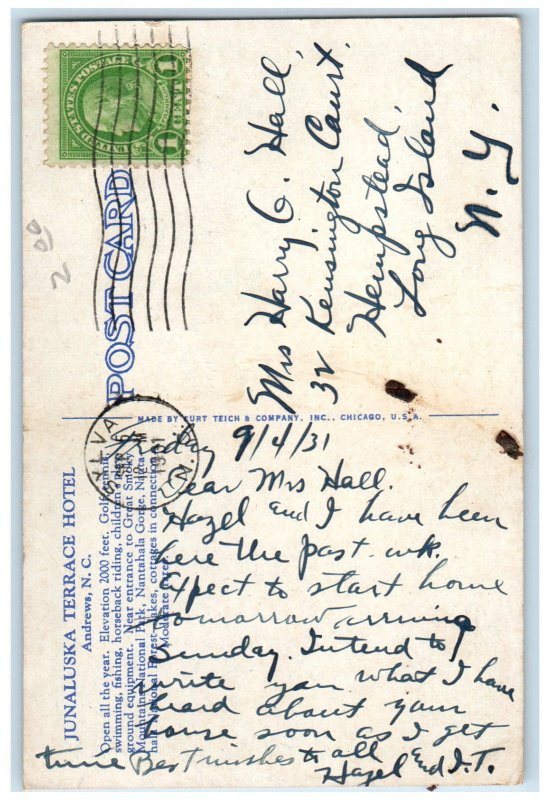 UNITED STATES POSTAGE
1 CENT 1
POST CARD
00
2
Mrs Harry G. Hall,
32 Kensington Court.
Hempstead,
Long Island
N. Y.
MADE BY CURT TEICH & COMPANY, INC., CHICAGO, U.S.A.
SYLVA
N.C.
SEP 5
1931
JUNALUSKA TERRACE HOTEL
Andrews, N. C.
Open all the year. Elevation 2000 feet. Golf, tennis,
swimming, fishing, horseback riding, children's play
ground equipment. Near entrance to Great Smoky
Mountains National Park, Nantahala Gorge, Nanta-
hala National Forest. Lakes, cottages in connection.
Moderate rates.
Friday 9/4/31
Dear Mrs Hall.
Hazel and I have been
here the past wk.
Expect to start home
tomorrow arriving
Sunday. Intend to
write you what I have
heard about your
house soon as I get
time Best wishes to all
Hazel and I.T.